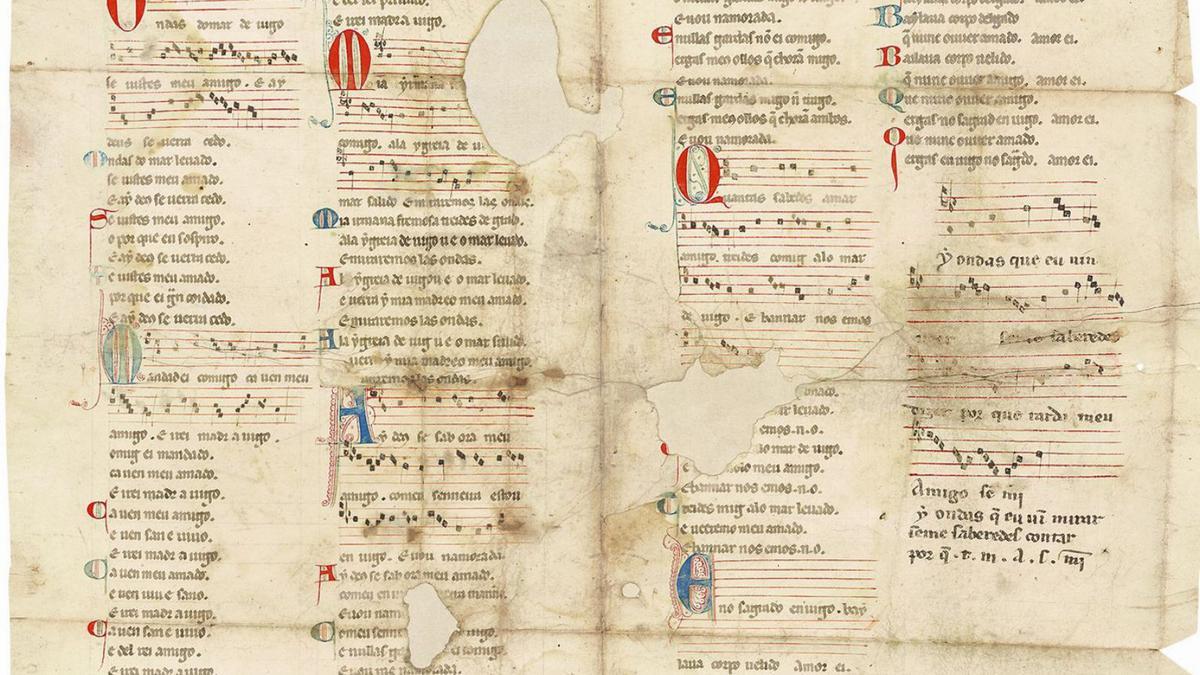 ndas do mar de uigo
se uistes meu amigo. E ay
deus se uerra cedo.
Ondas do mar leuado.
se uistes meu amado.
E ay deo se uerra cedo.
Se uistes meu amigo.
o por que eu sospiro.
E ay deo se uerra cedo.
Se uistes meu amado.
por que ei gñ coidado.
E ay deo se uerra cedo.
M
andad ei comigo ca uen meu
amigo. E irei madr a uigo.
omig ei mandado.
ca uen meu amado.
E irei madr a uigo.
Ca uen meu amigo.
e uen san e uiuo.
E irei madr a uigo.
Ca uen meu amado.
e uen uiu e sano.
E irei madr a uigo.
Ca uen san e uiuo.
e del rei amigo.
E irei madr a uigo.
E irei madr a uigo.
M
comigo. ala ygreia de u
mar salido E miraremos las ondas.
Mia irmana fremosa treides de grado.
ala ygreia de uigo u e o mar leuado.
E miraremos las ondas.
A la ygreia de uigo u e o mar leuado.
e uerra y mia madre o meu amado.
E miraremos las ondas.
A la ygreia de uig u e o mar salido.
uerra y mia madre o meu amigo.
miraremos las ondas.
A
y deo se sab ora meu
amigo. comeu senneira estou
en uigo. E uou namorada.
Ay deo se sab ora meu amado.
comeu en
E uou nam
omeu senn uigo.
e nullas g comigo.
E uou namorada.
E uou namorada.
E nullas gardas nõ ei comigo.
ergas meo ollos q chorã migo.
E uou namorada.
E nullas gardas migo ñ trago.
ergas meo ollos q chorã ambos.
E uou namorada.
Q
uantas sabedes amar
amigo. treides comig alo mar
de uigo. E bannar nos emos
amado.
mar leuado.
emos .n.o.
lo mar de uigo.
meu amigo.
E bannar nos emos .n.o.
Treides mig alo mar leuado.
e ueeremo meu amado.
E bannar nos emos .n.o.
E
no sagrado en uigo. bay
laua corpo uelido Amor ei.
Baylaua corpo delgado
q nunc ouuer amado. amor ei.
Bailaua corpo uelido.
q nunc ouuer amigo. amor ei.
Que nunc ouuer amigo.
ergas no sagrad en uigo. amor ei.
Que nunc ouuer amado.
ergas en uigo no sagrado. amor ei.
y ondas que eu uin
ueer se me saberedes
dizer por que tarda meu
Amigo se mi
y ondas q eu uin mirar
seme saberedes contar
por q̃. t. m. A. s. mi